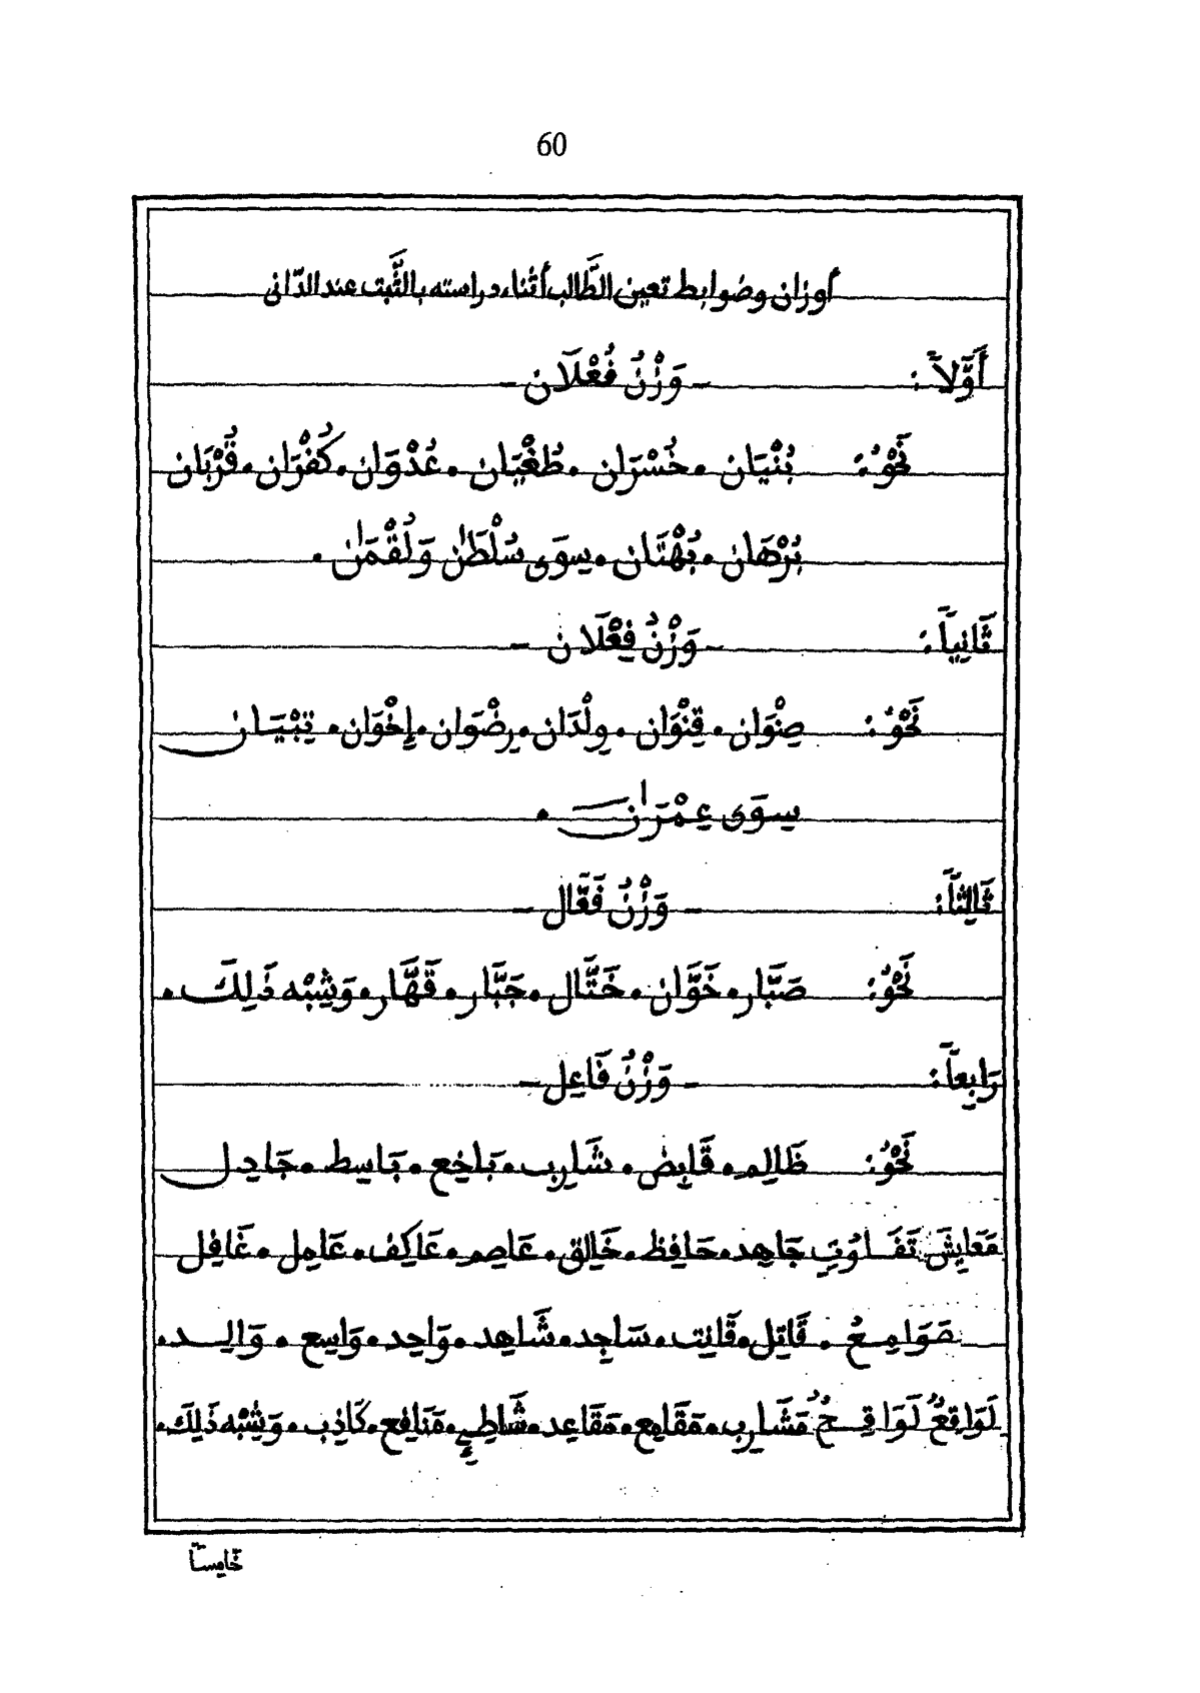 60
أوزان وضوابط تعين الطَّالب أثناء دراسته بالثَّبت عند الدّانى
أَوَّلاً : - وَزْنُ فُعْلَان -
نَحْوُ : بُنْيَان . خُسْرَان . طُغْيَان . عُدْوَان . كُفْرَان . قُرْبَان
بُرْهَان . بُهْتَان . سِوَى سُلْطَٰن وَلُقْمَٰن .
ثَانِياً : - وَزْنُ فِعْلَان -
نَحْوُ : صِنْوَان . قِنْوَان . وِلْدَان . رِضْوَان . إِخْوَان . تِبْيَان
سِوَى عِمْرَٰن .
ثَالِثاً : - وَزْنُ فَعَّال -
نَحْوُ : صَبَّار . خَوَّان . خَتَّال . جَبَّار . قَهَّار . وَشِبْه ذَلِكَ .
رَابِعاً : - وَزْنُ فَاعِل -
نَحْوُ : ظَالِم . قَابِض . شَارِب . بَاخِع . بَاسِط . جَادِل
مَعَايِشَ تَفَاوُتٍ جَاهِد . حَافِظ . خَالِق . عَاصِم . عَاكِف . عَامِل . غَافِل
صَوَامِعُ . قَاتِل . قَانِت . سَاجِد . شَاهِد . وَاحِد . وَاسِع . وَالِد .
لَوَاقِعٌ لَوَاقِحُ مَشَارِب . مَقَامِع . مَقَاعِد . شَاطِئِ . مَنَافِع . كَاذِب . وَشِبْه ذَلِكَ .
خَامِساً